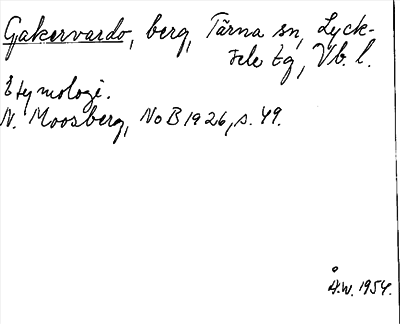 Gakervardo, berg, Tärna sn, Lyck-
sele tg, Vb. l.
Etymologi.
N. Moosberg, NoB 1926, s. 49.
Å.W. 1954.